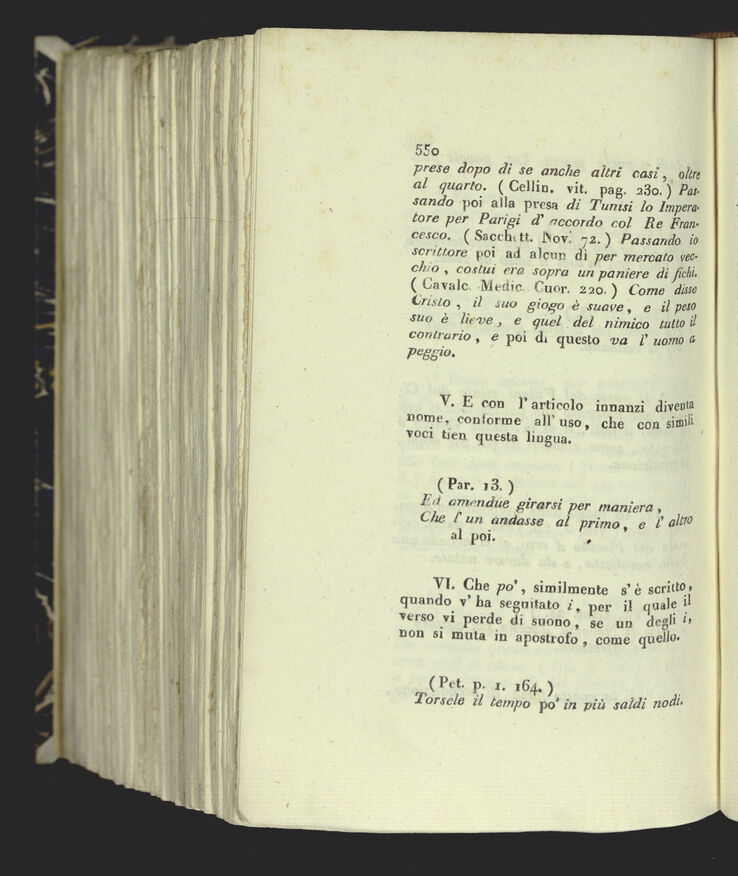 550
prese dopo di se anche altri casi, oltre
al quarto. (Cellin. vit. pag. 230.) Pas-
sando poi alla presa di Tunisi lo Impera-
tore per Parigi d' accordo col Re Fran-
cesco. (Sacchett. Nov. 72.) Passando io
scrittore poi ad alcun dì per mercato vec-
chio, costui era sopra un paniere di fichi.
(Cavalc. Medic. Cuor. 220.) Come disse
Cristo, il suo giogo è suave, e il peso
suo è lieve, e quel del nimico tutto il
contrario, e poi di questo va l' uomo a
peggio.
V. E con l' articolo innanzi diventa
nome, conforme all' uso, che con simili
voci tien questa lingua.
(Par. 13.)
Ed amendue girarsi per maniera,
Che l' un andasse al primo, e l' altro
al poi.
VI. Che po', similmente s' è scritto,
quando v' ha seguitato i, per il quale il
verso vi perde di suono, se un degli i,
non si muta in apostrofo, come quello.
(Pet. p. 1. 164.)
Torsele il tempo po' in più saldi nodi.